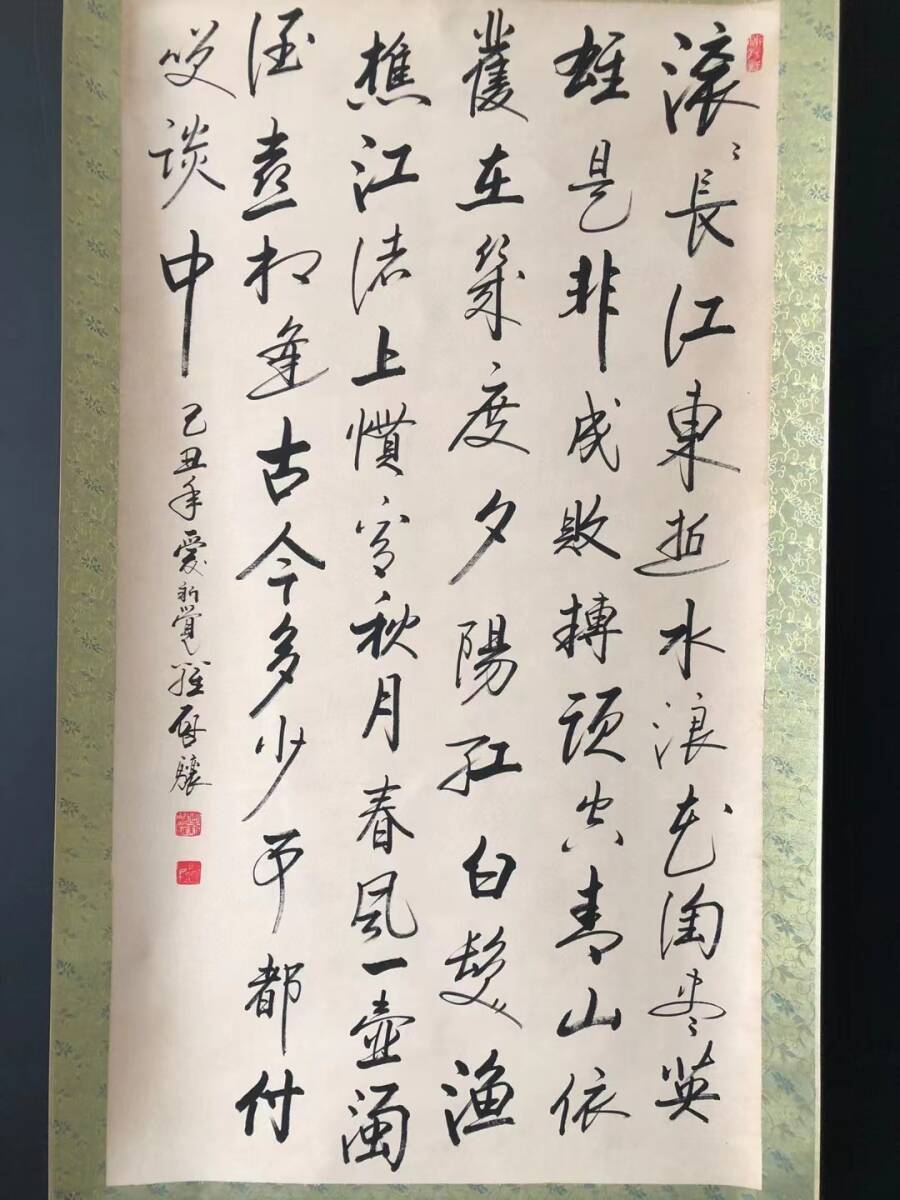 滚〻長江東逝水浪花淘盡英
雄是非成敗轉頭空青山依
舊在幾度夕陽紅白髮漁
樵江渚上慣看秋月春風一壺濁
酒喜相逢古今多少事都付
咲談中
己丑年愛新覺羅啓驤